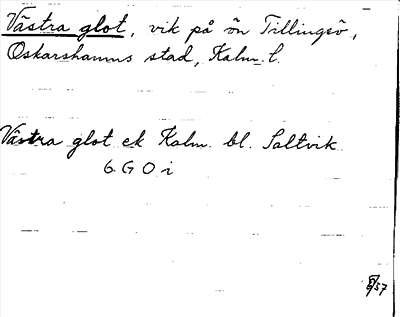 Västra glot, vik på ön Tillingeö,
Oskarshamns stad, Kalm. l.
Västra glot ek Kalm. bl. Saltvik
6 G 0 i
57